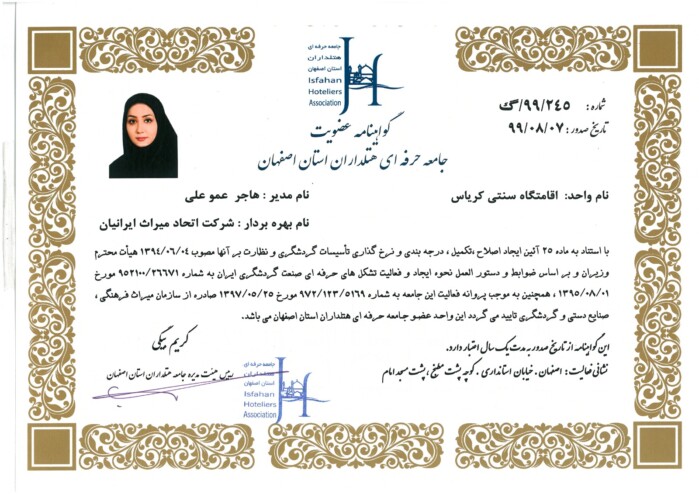 جامعه حرفه ای
هتلداران
استان اصفهان
Isfahan
Hoteliers
Association
شماره : ۹۹/۲۴۵/گ
تاریخ صدور : ۹۹/۰۸/۰۷
گواهینامه عضویت
جامعه حرفه ای هتلداران استان اصفهان
نام واحد: اقامتگاه سنتی کریاس
نام مدیر : هاجر عمو علی
نام بهره بردار : شرکت اتحاد میراث ایرانیان
با استناد به ماده ۲۵ آئین ایجاد اصلاح ،تکمیل ، درجه بندی و نرخ گذاری تأسیسات گردشگری و نظارت بر آنها مصوب ۱۳۹۴/۰۶/۰۴ هیأت محترم
وزیران و بر اساس ضوابط و دستور العمل نحوه ایجاد و فعالیت تشکل های حرفه ای صنعت گردشگری ایران به شماره ۹۵۲۱۰۰/۲۶۶۷۱ مورخ
۱۳۹۵/۰۸/۰۱ ، همچنین به موجب پروانه فعالیت این جامعه به شماره ۹۷۲/۱۲۳/۵۱۶۹ مورخ ۱۳۹۷/۰۵/۲۵ صادره از سازمان میراث فرهنگی ،
صنایع دستی و گردشگری تایید می گردد این واحد عضو جامعه حرفه ای هتلداران استان اصفهان می باشد.
این گواهینامه از تاریخ صدور به مدت یک سال اعتبار دارد.
نشانی فعالیت : اصفهان . خیابان استانداری . کوچه پشت مطبخ ، پشت مسجد امام
کریم بیگی
رییس هیئت مدیره جامعه هتلداران استان اصفهان
جامعه حرفه ای
هتلداران
استان اصفهان
Isfahan
Hoteliers
Association